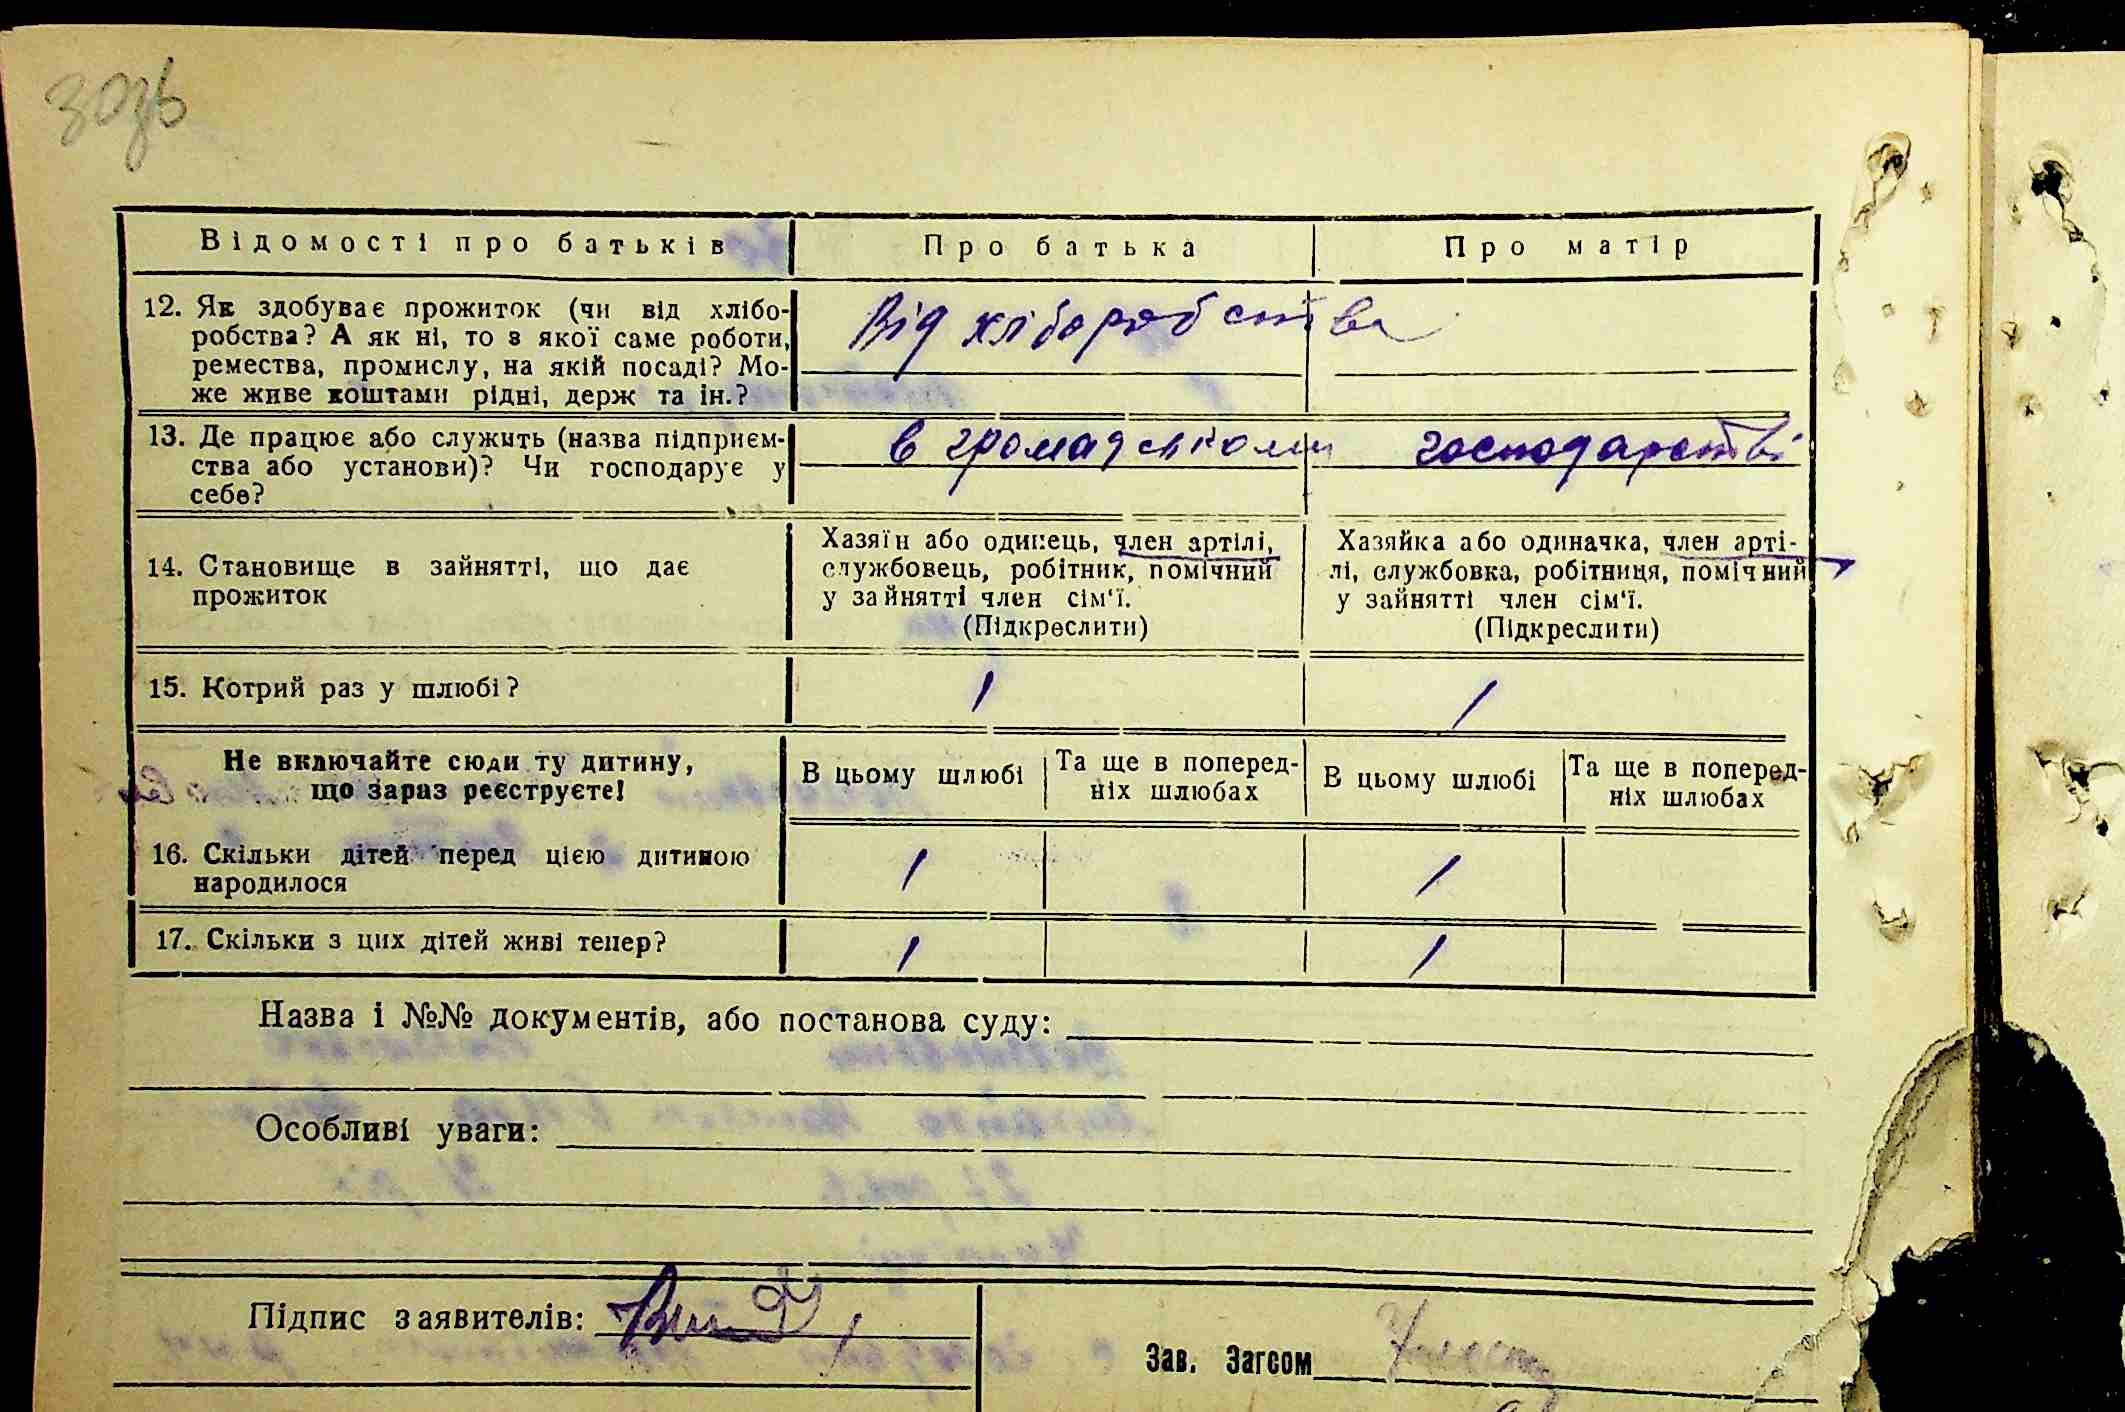 30зв
Відомості про батьків Про батька Про матір
12. Як здобуває прожиток (чи від хлібо-
робства? А як ні, то з якої саме роботи,
ремества, промислу, на якій посаді? Мо-
же живе коштами рідні, держ та ін.?
Від хліборобства
13. Де працює або служить (назва підприєм-
ства або установи)? Чи господарує у
себе?
в громадському господарстві
14. Становище в зайнятті, що дає
прожиток
Хазяїн або одинець, член артілі,
службовець, робітник, помічний
у зайнятті член сім'ї.
(Підкреслити)
Хазяйка або одиначка, член арті-
лі, службовка, робітниця, помічний
у зайнятті член сім'ї.
(Підкреслити)
15. Котрий раз у шлюбі? 1 1
Не включайте сюди ту дитину,
що зараз реєструєте!
В цьому шлюбі
Та ще в поперед-
ніх шлюбах
В цьому шлюбі
Та ще в поперед-
ніх шлюбах
16. Скільки дітей перед цією дитиною
народилося
1 1
17. Скільки з цих дітей живі тепер? 1 1
Назва і №№ документів, або постанова суду:
Особливі уваги:
Підпис заявителів:
Зав. Загсом